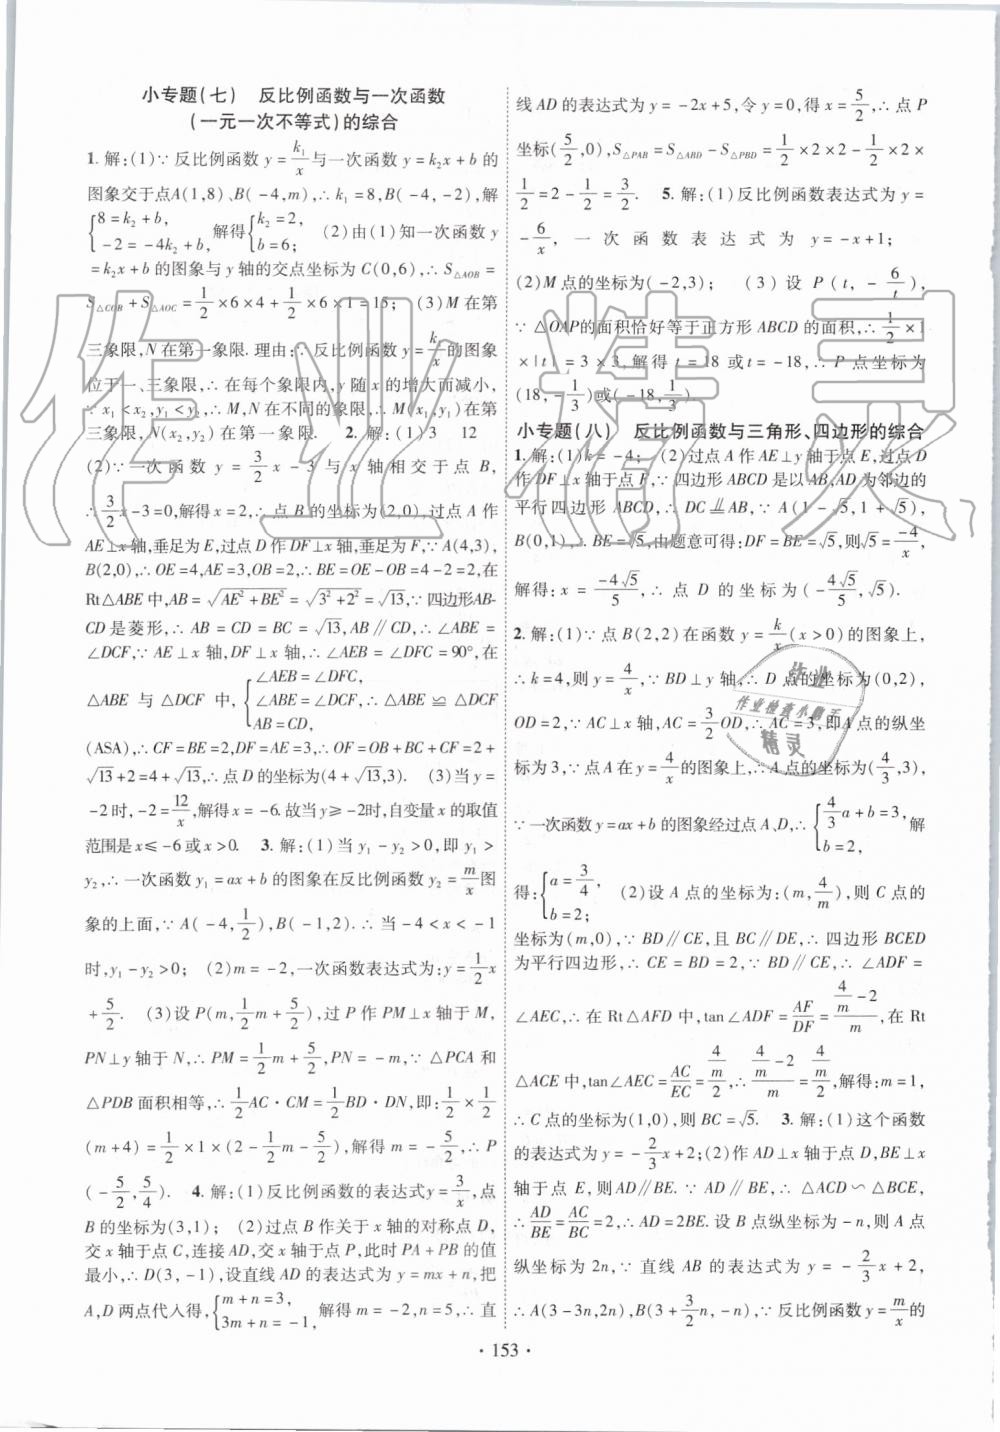 小专题(七)　反比例函数与一次函数
(一元一次不等式)的综合
1. 解:(1)∵反比例函数 y=k₁/x与一次函数 y=k₂x+b 的
图象交于点A(1,8)、B(-4,m),∴k₁=8,B(-4,-2),解
{8=k₂+b, -2=-4k₂+b, 解得{k₂=2, b=6;　(2)由(1)知一次函数 y
=k₂x+b 的图象与 y 轴的交点坐标为 C(0,6),∴S△AOB=
S△COB+S△AOC=1/2×6×4+1/2×6×1=15;　(3)M 在第
三象限,N 在第一象限. 理由:∵反比例函数 y=k₁/x的图象
位于一、三象限,∴在每个象限内,y 随 x 的增大而减小,
∵x₁<x₂,y₁<y₂,∴M,N 在不同的象限,∴M(x₁,y₁)在第
三象限,N(x₂,y₂)在第一象限.　2. 解:(1)3　12
(2)∵一次函数 y=3/2x-3 与 x 轴相交于点 B,
∴3/2x-3=0,解得 x=2,∴点 B 的坐标为(2,0),过点 A 作
AE⊥x 轴,垂足为 E,过点 D 作 DF⊥x 轴,垂足为 F,∵A(4,3),
B(2,0),∴OE=4,AE=3,OB=2,∴BE=OE-OB=4-2=2,在
Rt△ABE 中,AB=√(AE²+BE²)=√(3²+2²)=√13,∵四边形AB-
CD 是菱形,∴AB=CD=BC=√13,AB∥CD,∴∠ABE=
∠DCF,∵AE⊥x 轴,DF⊥x 轴,∴∠AEB=∠DFC=90°,在
△ABE 与 △DCF 中,{∠AEB=∠DFC, ∠ABE=∠DCF, AB=CD, ∴△ABE≌△DCF
(ASA),∴CF=BE=2,DF=AE=3,∴OF=OB+BC+CF=2+
√13+2=4+√13,∴点 D 的坐标为(4+√13,3).　(3)当 y=
-2时,-2=12/x,解得 x=-6. 故当 y≥-2时,自变量 x 的取值
范围是 x≤-6或 x>0.　3. 解:(1)当 y₁-y₂>0,即 y₁>
y₂,∴一次函数 y₁=ax+b 的图象在反比例函数 y₂=m/x图
象的上面,∵A(-4,1/2),B(-1,2).∴当-4<x<-1
时,y₁-y₂>0;　(2)m=-2,一次函数表达式为:y=1/2x
+5/2.　(3)设 P(m,1/2m+5/2),过 P 作 PM⊥x 轴于 M,
PN⊥y 轴于 N,∴PM=1/2m+5/2,PN=-m,∵△PCA 和
△PDB 面积相等,∴1/2AC·CM=1/2BD·DN,即:1/2×1/2×
(m+4)=1/2×1×(2-1/2m-5/2),解得 m=-5/2,∴P
(-5/2,5/4).　4. 解:(1)反比例函数的表达式y=3/x,点
B 的坐标为(3,1);　(2)过点 B 作关于 x 轴的对称点 D,
交 x 轴于点 C,连接 AD,交 x 轴于点 P,此时 PA+PB 的值
最小,∴D(3,-1),设直线 AD 的表达式为 y=mx+n,把
A,D 两点代入得,{m+n=3, 3m+n=-1, 解得 m=-2,n=5,∴直
线 AD 的表达式为 y=-2x+5,令 y=0,得 x=5/2,∴点 P
坐标(5/2,0),S△PAB=S△ABD-S△PBD=1/2×2×2-1/2×2×
1/2=2-1/2=3/2.　5. 解:(1)反比例函数表达式为 y=
-6/x,一次函数表达式为 y=-x+1;
(2)M 点的坐标为(-2,3);　(3)设 P(t,-6/t),
∵△OAP的面积恰好等于正方形 ABCD 的面积,∴1/2×1
×|t|=3×3,解得 t=18 或 t=-18,∴P 点坐标为
(18,-1/3)或(-18,1/3).
小专题(八)　反比例函数与三角形、四边形的综合
1. 解:(1)k=-4;　(2)过点 A 作 AE⊥y 轴于点 E,过点 D
作 DF⊥x轴于点 F,∵四边形 ABCD 是以 AB,AD 为邻边的
平行四边形 ABCD,∴DC⫫AB,∵A(1-√5,1+√5),
B(0,1),∴BE=√5,由题意可得:DF=BE=√5,则√5=-4/x,
解得:x=-4√5/5,∴点 D 的坐标为(-4√5/5,√5).
2. 解:(1)∵点 B(2,2)在函数 y=k/x(x>0)的图象上,
∴k=4,则 y=4/x,∵BD⊥y 轴,∴D 点的坐标为(0,2),
OD=2,∵AC⊥x 轴,AC=3/2OD,∴AC=3,即A 点的纵坐
标为3,∵点 A 在 y=4/x的图象上,∴A 点的坐标为(4/3,3),
∵一次函数 y=ax+b 的图象经过点 A、D,∴{4/3a+b=3, b=2, 解
得:{a=3/4, b=2;　(2)设 A 点的坐标为:(m,4/m),则 C 点的
坐标为(m,0),∵BD∥CE,且 BC∥DE,∴四边形 BCED
为平行四边形,∴CE=BD=2,∵BD∥CE,∴∠ADF=
∠AEC,∴在 Rt△AFD 中,tan∠ADF=AF/DF=(4/m-2)/m,在 Rt
△ACE 中,tan∠AEC=AC/EC=(4/m)/2,∴(4/m-2)/m=(4/m)/2,解得:m=1,
∴C 点的坐标为(1,0),则 BC=√5.　3. 解:(1)这个函数
的表达式为 y=-2/3x+2;(2)作 AD⊥x 轴于点 D,BE⊥x
轴于点 E,则AD∥BE. ∵AD∥BE,∴△ACD∽△BCE,
∴AD/BE=AC/BC=2,∴AD=2BE. 设 B 点纵坐标为-n,则 A 点
纵坐标为 2n,∵直线 AB 的表达式为 y=-2/3x+2,
∴A(3-3n,2n),B(3+3/2n,-n),∵反比例函数 y=m/x的
·153·
作业精灵
作业
作业检查小帮手
精灵